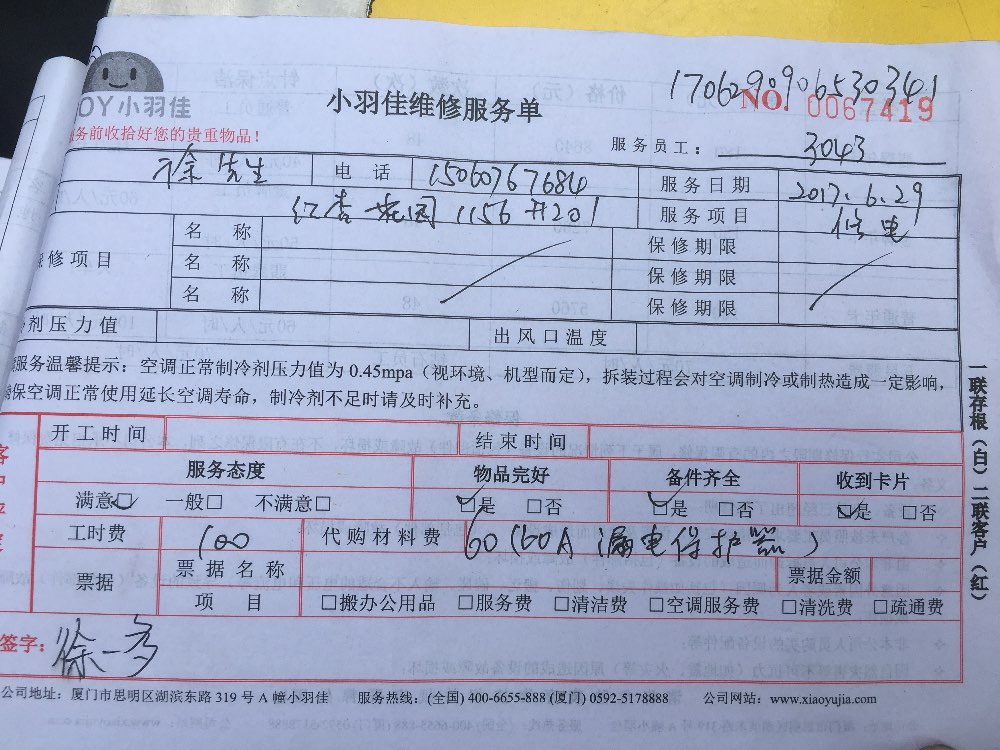 170629090653034​1
OY小羽佳
小羽佳维修服务单
NO. 0067419
务前收拾好您的贵重物品！
服务员工： 3043
徐先生 电 话 15060767684 服务日期 2017.6.29
红杏花园1156#201 服务项目 修电
修项目 名 称 保修期限
名 称 保修期限
名 称 保修期限
剂压力值 出风口温度
服务温馨提示：空调正常制冷剂压力值为 0.45mpa（视环境、机型而定），拆装过程会对空调制冷或制热造成一定影响，
保空调正常使用延长空调寿命，制冷剂不足时请及时补充。
开工时间 结束时间
服务态度 物品完好 备件齐全 收到卡片
满意☑ 一般□ 不满意□ ☑是 □否 ☑是 □否 ☑是 □否
工时费 100 代购材料费 60（60A漏电保护器）
票据 票据名称 票据金额
项 目 □搬办公用品 □服务费 □清洁费 □空调服务费 □清洗费 □疏通费
签字： 徐一多
公司地址：厦门市思明区湖滨东路 319 号 A 幢小羽佳 服务热线：(全国) 400-6655-888 (厦门) 0592-5178888 公司网站：www.xiaoyujia.com
一联存根（白）二联客户（红）